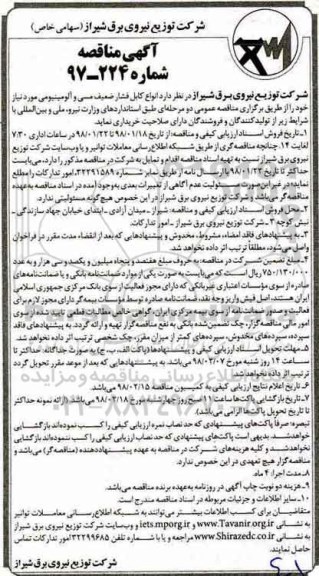 شرکت توزیع نیروی برق شیراز (سهامی خاص)
آگهی مناقصه
شماره ۲۲۴-۹۷
شرکت توزیع نیروی برق شیراز در نظر دارد انواع کابل فشار ضعیف مسی و آلومینیومی مورد نیاز
خود را از طریق برگزاری مناقصه عمومی دو مرحله‌ای طبق استانداردهای وزارت نیرو، ملی و بین‌المللی با
شرایط زیر از تولیدکنندگان و فروشندگان دارای صلاحیت خریداری نماید.
۱- تاریخ فروش اسناد ارزیابی کیفی و مناقصه: از تاریخ ۹۸/۰۱/۱۸ تا ۹۸/۰۱/۲۲ در ساعات اداری ۷/۳۰
لغایت ۱۴. چنانچه مناقصه‌گری از طریق شبکه اطلاع‌رسانی معاملات توانیر و یا وب‌سایت شرکت توزیع
نیروی برق شیراز نسبت به تهیه اسناد مناقصه اقدام و تمایل به شرکت در مناقصه مذکور را دارد، می‌بایست
حداکثر تا تاریخ ۹۸/۰۱/۲۲ با ارسال نامه از طریق نمابر شماره ۳۲۲۹۱۵۸۹ امور تدارکات را مطلع
نماید؛ در غیر این صورت مسئولیت عدم آگاهی از تغییرات بعدی بوجود آمده در اسناد مناقصه به عهده
مناقصه‌گر می‌باشد و شرکت توزیع نیروی برق شیراز در این خصوص هیچ‌گونه مسئولیتی ندارد.
۲- محل فروش اسناد ارزیابی کیفی و مناقصه: شیراز - میدان آزادی - ابتدای خیابان جهاد سازندگی -
نبش کوچه ۳ - شرکت توزیع نیروی برق شیراز - امور تدارکات.
۳- به پیشنهادهای فاقد امضاء، مشروط، مخدوش و پیشنهادهایی که بعد از انقضاء مدت مقرر در فراخوان
واصل می‌شود، مطلقاً ترتیب اثر داده نخواهد شد.
۴- مبلغ تضمین شرکت در مناقصه: به حروف مبلغ هفتصد و پنجاه میلیون و یکصد و سی هزار و به عدد
۷۵۰/۱۳۰/۰۰۰ ریال است که می‌بایست به صورت یکی از موارد ضمانت‌نامه بانکی و یا ضمانت‌نامه‌های
صادره از سوی مؤسسات اعتباری غیربانکی که دارای مجوز فعالیت از سوی بانک مرکزی جمهوری اسلامی
ایران هستند، اصل فیش واریز وجه نقد، ضمانت‌نامه صادره توسط مؤسسات بیمه‌گر دارای مجوز لازم برای
فعالیت و صدور ضمانت‌نامه از سوی بیمه مرکزی ایران، گواهی خالص مطالبات قطعی تایید شده از سوی
امور مالی مناقصه‌گزار، چک تضمین شده بانکی به نفع مناقصه‌گزار تهیه و ارائه گردد. به پیشنهادهای فاقد
سپرده، سپرده‌های مخدوش، سپرده‌های کمتر از میزان مقرر، چک شخصی ترتیب اثر داده نخواهد شد.
۵- مهلت تحویل اسناد ارزیابی کیفی و پیشنهادها (پاکت الف، ب، ج) به صورت جداگانه: حداکثر تا
ساعت ۱۴ روز شنبه مورخ ۹۸/۰۲/۰۷ می‌باشد. به پیشنهادهایی که بعد از موعد مقرر تحویل گردد
ترتیب اثر داده نخواهد شد.
۶- تاریخ اعلام نتایج ارزیابی کیفی به کمیسیون مناقصه ۹۸/۰۲/۱۵ می‌باشد.
۷- تاریخ بازگشایی پاکت‌ها ساعت ۱۰ صبح روز چهارشنبه مورخ ۹۸/۰۲/۱۸ می‌باشد. (ارائه نمونه حداکثر
تا تاریخ تحویل پاکت‌ها الزامی می‌باشد.)
تبصره: صرفاً پاکت‌های پیشنهادی که حد نصاب نمره ارزیابی کیفی را کسب نموده‌اند بازگشایی
خواهد شد. بدیهی است پاکت‌های پیشنهادی که حد نصاب ارزیابی کیفی را کسب ننموده‌اند بازگشایی
نخواهد شد و کلیه هزینه‌های شرکت در مناقصه به عهده پیشنهاددهنده (مناقصه‌گر) می‌باشد و
مناقصه‌گزار هیچ تعهدی در این خصوص ندارد.
۸- مدت اجرا: ۴ ماه.
۹- هزینه دو نوبت چاپ آگهی در روزنامه به‌عهده برنده مناقصه می‌باشد.
۱۰- سایر اطلاعات و جزئیات مربوطه در اسناد مناقصه مندرج است.
متقاضیان برای کسب اطلاعات بیشتر می‌توانند به شبکه اطلاع‌رسانی معاملات توانیر
به نشانی www.Tavanir.org.ir و iets.mporg.ir و وب‌سایت شرکت توزیع نیروی برق شیراز
به نشانی www.Shirazedc.co.ir مراجعه و یا با شماره تلفن ۳۲۲۹۹۶۸۵ امور تدارکات تماس
حاصل نمایند.
شرکت توزیع نیروی برق شیراز